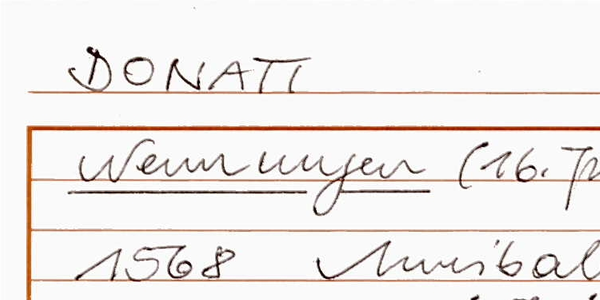 DONATI
Nennungen (16. Jh
1568 Annibal